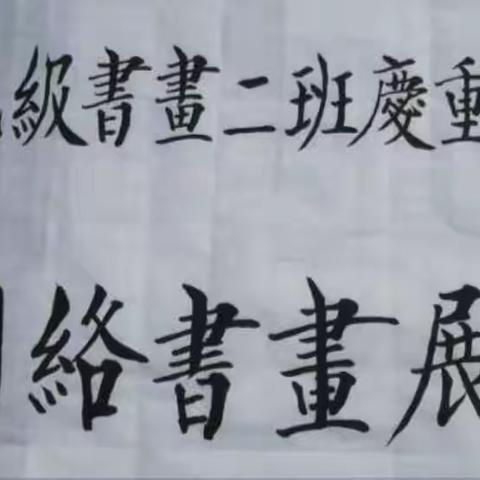 級書畫二班慶重
絡書畫展